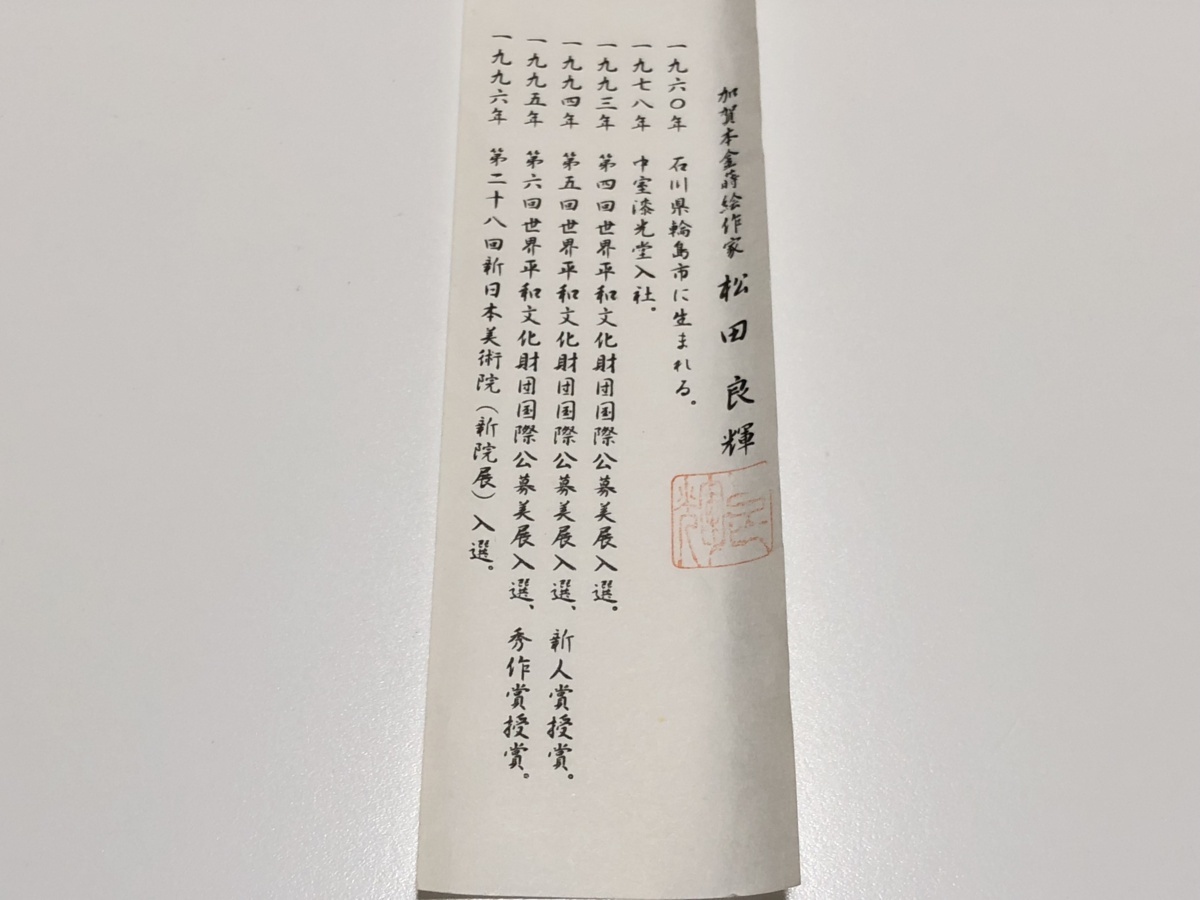 加賀本金蒔絵作家 松田良輝
一九六〇年 石川県輪島市に生まれる。
一九七八年 中室漆光堂入社。
一九九三年 第四回世界平和文化財団国際公募美展入選。
一九九四年 第五回世界平和文化財団国際公募美展入選、新人賞授賞。
一九九五年 第六回世界平和文化財団国際公募美展入選、秀作賞授賞。
一九九六年 第二十八回新日本美術院(新院展)入選。